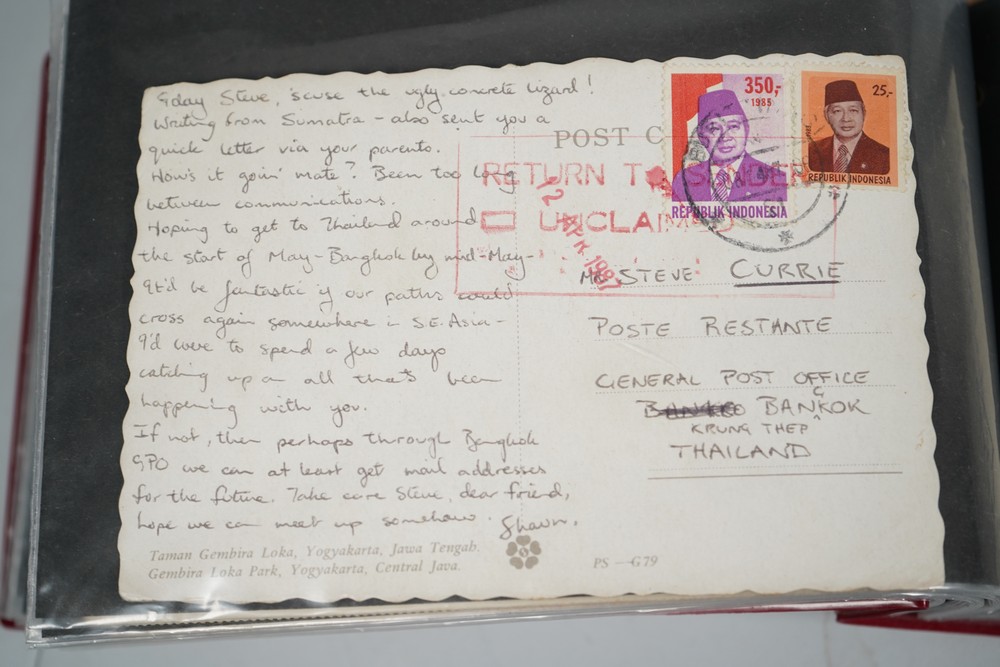 G'day Steve, 'scuse the ugly concrete lizard!
Writing from Sumatra - also sent you a
quick letter via your parents.
How's it goin' mate? Been too long
between communications.
Hoping to get to Thailand around
the start of May - Bangkok by mid-May -
It'd be fantastic if our paths could
cross again somewhere in S.E. Asia -
I'd love to spend a few days
catching up on all that's been
happening with you.
If not, then perhaps through Bangkok
GPO we can at least get mail addresses
for the future. Take care Steve, dear friend,
hope we can meet up somehow. Shawn.
Taman Gembira Loka, Yogyakarta, Jawa Tengah.
Gembira Loka Park, Yogyakarta, Central Java.
PS - G79
POST C
RETURN TO SENDER
UNCLAIMED
1987
350,-
1983
REPUBLIK INDONESIA
25,-
REPUBLIK INDONESIA
MR STEVE CURRIE
POSTE RESTANTE
GENERAL POST OFFICE
BANGKOK
KRUNG THEP
THAILAND